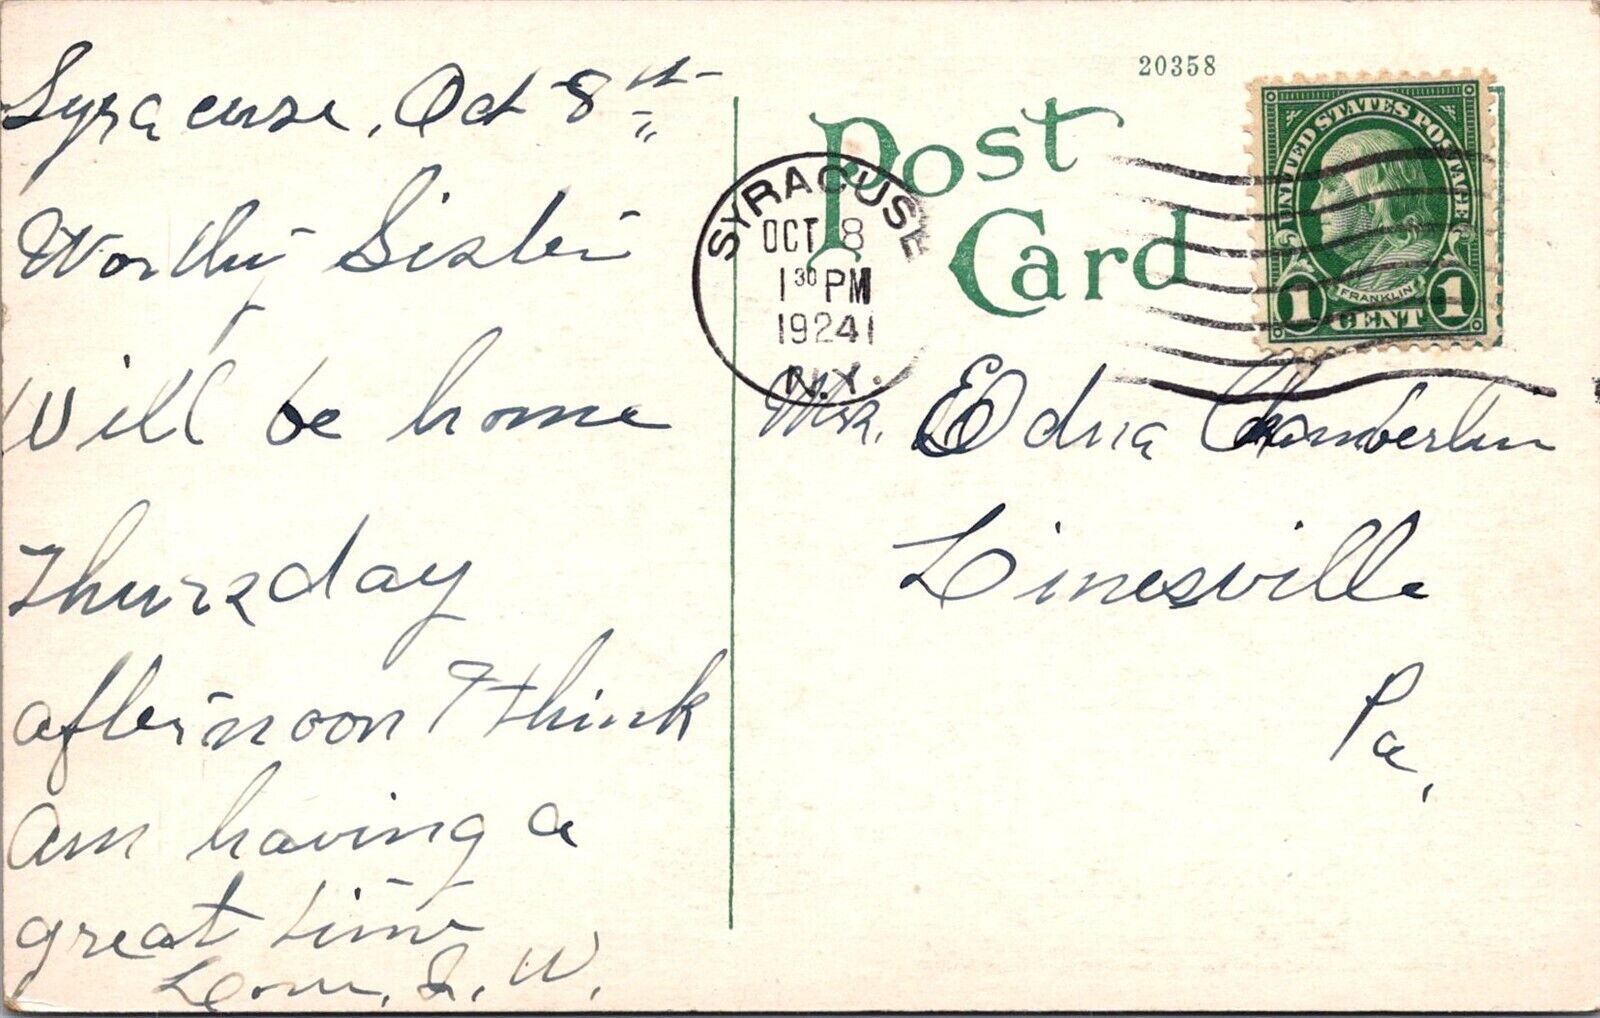 Syracuse, Oct 8th
Worthy Sister
Will be home
Thursday
afternoon I think
am having a
great time
20358
Post
Card
SYRACUSE
OCT 8
1 30 PM
1924 1
N.Y.
UNITED STATES POSTAGE
FRANKLIN
1 CENT 1
Mrs. Edna Chamberlin
Linesville
Pa,